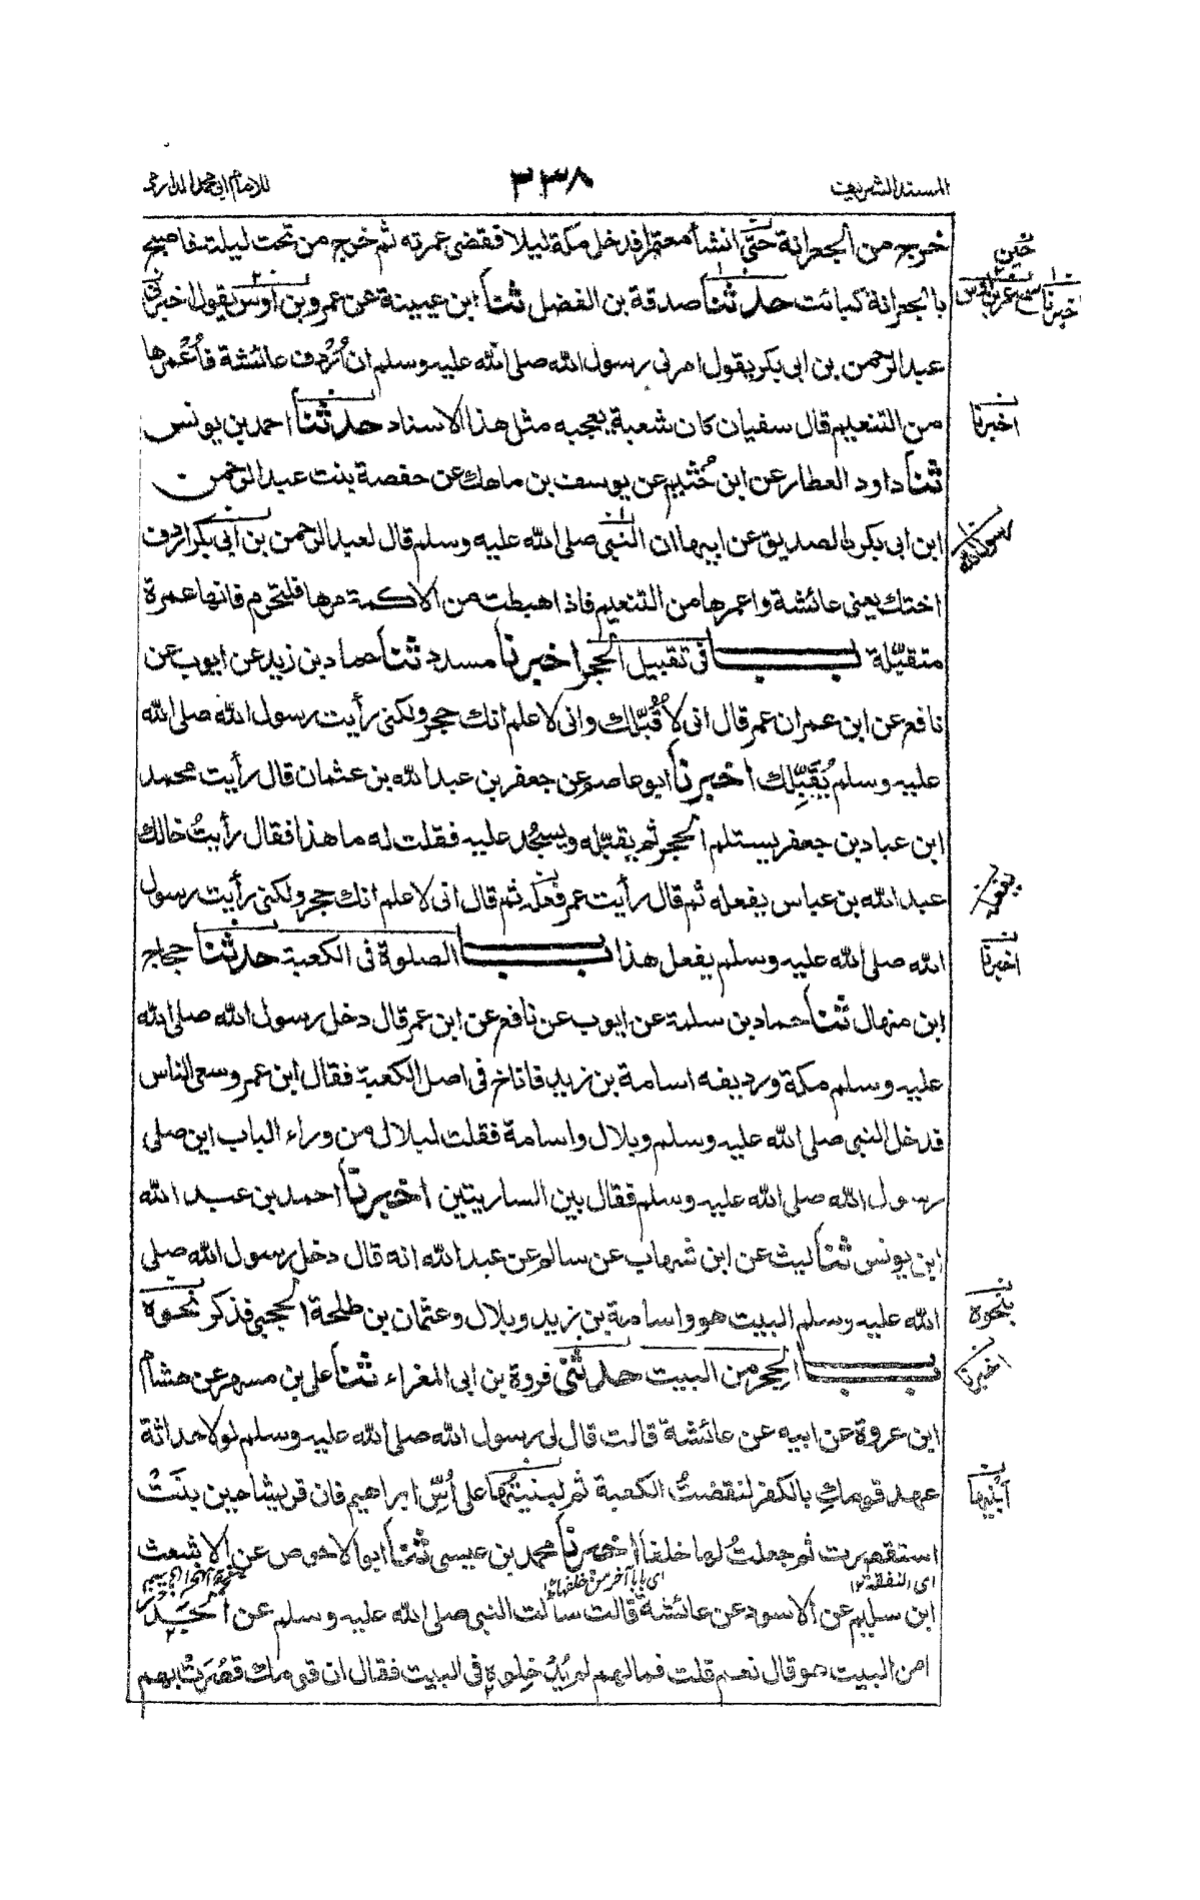 المسند الشريف ٣٣٨ للامام ابي محمد الدارمي
خرج من الجعرانة حتى انشأ معتمرا فدخل مكة ليلا فقضى عمرته ثم خرج من تحت ليلته فاصبح
بالجعرانة كبائت حدثنا صدقة بن الفضل ثنا ابن عيينة عن عمرو بن اوس يقول اخبرني
عبد الرحمن بن ابي بكر يقول امرني رسول الله صلى الله عليه وسلم ان اُرْدِف عائشة فاُعْمِرها
من التنعيم قال سفيان كان شعبة يعجبه مثل هذا الاسناد حدثنا احمد بن يونس
ثنا داود العطار عن ابن خُثيم عن يوسف بن ماهك عن حفصة بنت عبد الرحمن
ابن ابي بكر الصديق عن ابيها ان النبي صلى الله عليه وسلم قال لعبد الرحمن بن ابي بكر اردف
اختك يعني عائشة واعمرها من التنعيم فاذا هبطت من الاكمة مرها فلتحرم فانها عمرة
متقبّلة باب في تقبيل الحجر اخبرنا مسدد ثنا حماد بن زيد عن ايوب عن
نافع عن ابن عمر ان عمر قال اني لاُقُبّلك واني لاعلم انك حجر ولكني رأيت رسول الله صلى الله
عليه وسلم يُقَبِّلك اخبرنا ابو عاصم عن جعفر بن عبد الله بن عثمان قال رأيت محمد
ابن عباد بن جعفر يستلم الحجر ثم يقبّله ويسجُد عليه فقلت له ما هذا فقال رأيتُ خالك
عبد الله بن عباس يفعله ثم قال رأيت عمر فعله ثم قال اني لاعلم انك حجر ولكني رأيت رسول
الله صلى الله عليه وسلم يفعل هذا باب الصلوة في الكعبة حدثنا حجاج
ابن منهال ثنا حماد بن سلمة عن ايوب عن نافع عن ابن عمر قال دخل رسول الله صلى الله
عليه وسلم مكة ورديفه اسامة بن زيد فاناخ في اصل الكعبة فقال ابن عمر وسعى الناس
فدخل النبي صلى الله عليه وسلم وبلال واسامة فقلت لبلال من وراء الباب اين صلى
رسول الله صلى الله عليه وسلم فقال بين الساريتين اخبرنا احمد بن عبد الله
ابن يونس ثنا ليث عن ابن شهاب عن سالم عن عبد الله انه قال دخل رسول الله صلى
الله عليه وسلم البيت هو واسامة بن زيد وبلال وعثمان بن طلحة الحجبي فذكر نحوه
باب الحِجر من البيت حدثني فروة بن ابي المغراء ثنا علي بن مسهر عن هشام
ابن عروة عن ابيه عن عائشة قالت قال لي رسول الله صلى الله عليه وسلم لولا حداثة
عهد قومك بالكفر لنقضتُ الكعبة ثم لبنيتُها على اُسِّ ابراهيم فان قريشا حين بنَتْ
استقصرت ثم جعلتُ لها خلفا اخبرنا محمد بن عيسى ثنا ابو الاحوص عن الاشعث
اي النفقة ١٢ اي بابا آخر من خلفها ١٢
ابن سليم عن الاسود عن عائشة قالت سألت النبي صلى الله عليه وسلم عن الجَدر
امن البيت هو قال نعم قلت فما لهم لم يُدْخِلوه في البيت فقال ان قومك قصُرَتْ بهم
حُنين
اخبرنا
سمع عمرو بن اوس
اخبرنا
رسول الله
يفعله
اخبرنا
بنحوه
اخبرنا
اَبْنيها